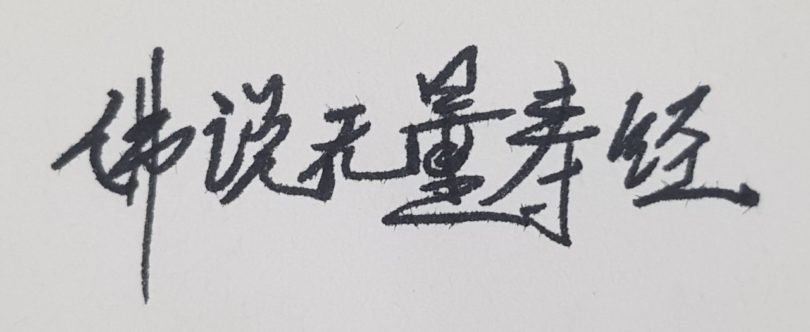 佛说无量寿经